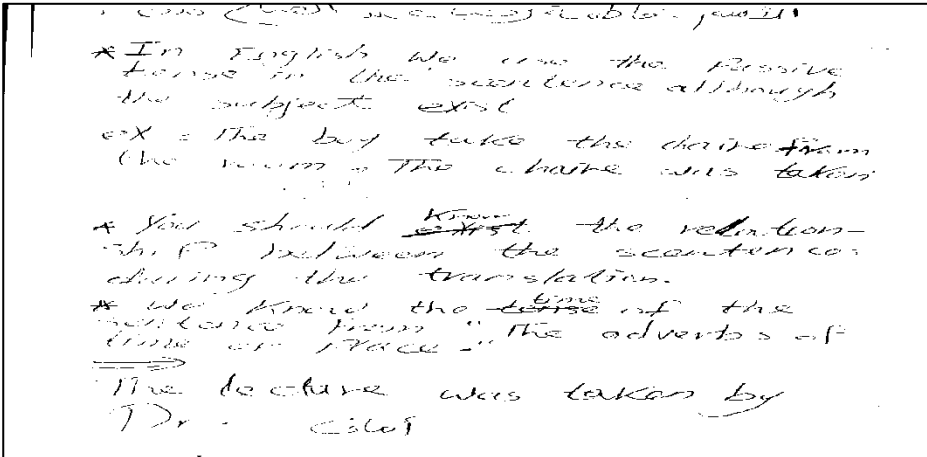 * In English we use the Passive
tense in the scentence although
the subject exist
ex : The boy take the chaire from
the room . The chaire was taken
* You should exist know the relation-
ship between the scentence
during the translation.
* We know the tense time of the
sentence from " The adverbs of
time or place . "
The lecture was taken by
Dr .